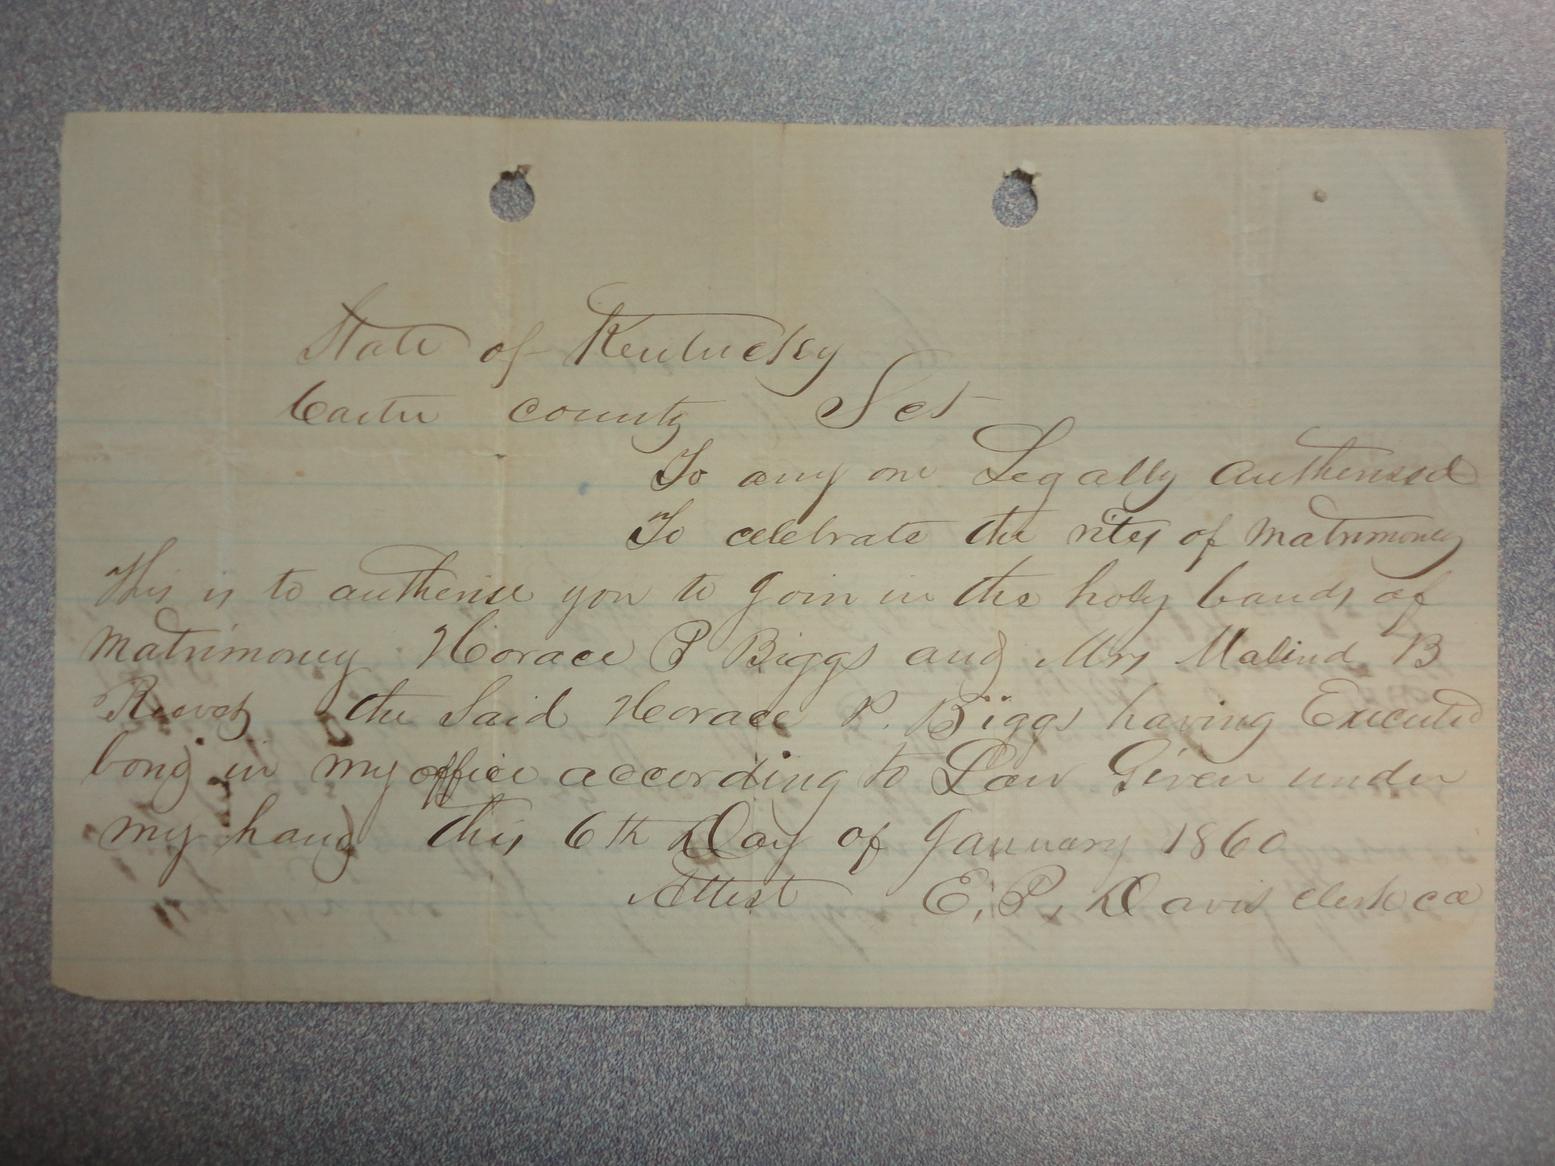 State of Kentucky
Carter county Sct
To any one Legally authorised
To celebrate the rites of matrimony
This is to authorise you to join in the holy bands of
matrimony Horace P Biggs and Mrs Malinda B
Reeves the said Horace P. Biggs having Executed
bond in my office according to Law Given under
my hand this 6th Day of January 1860
Attest E. P. Davis clerk cc